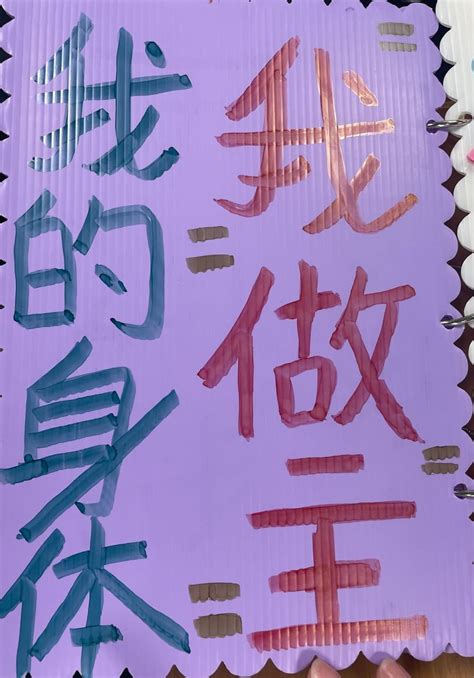 我的身体
我做主